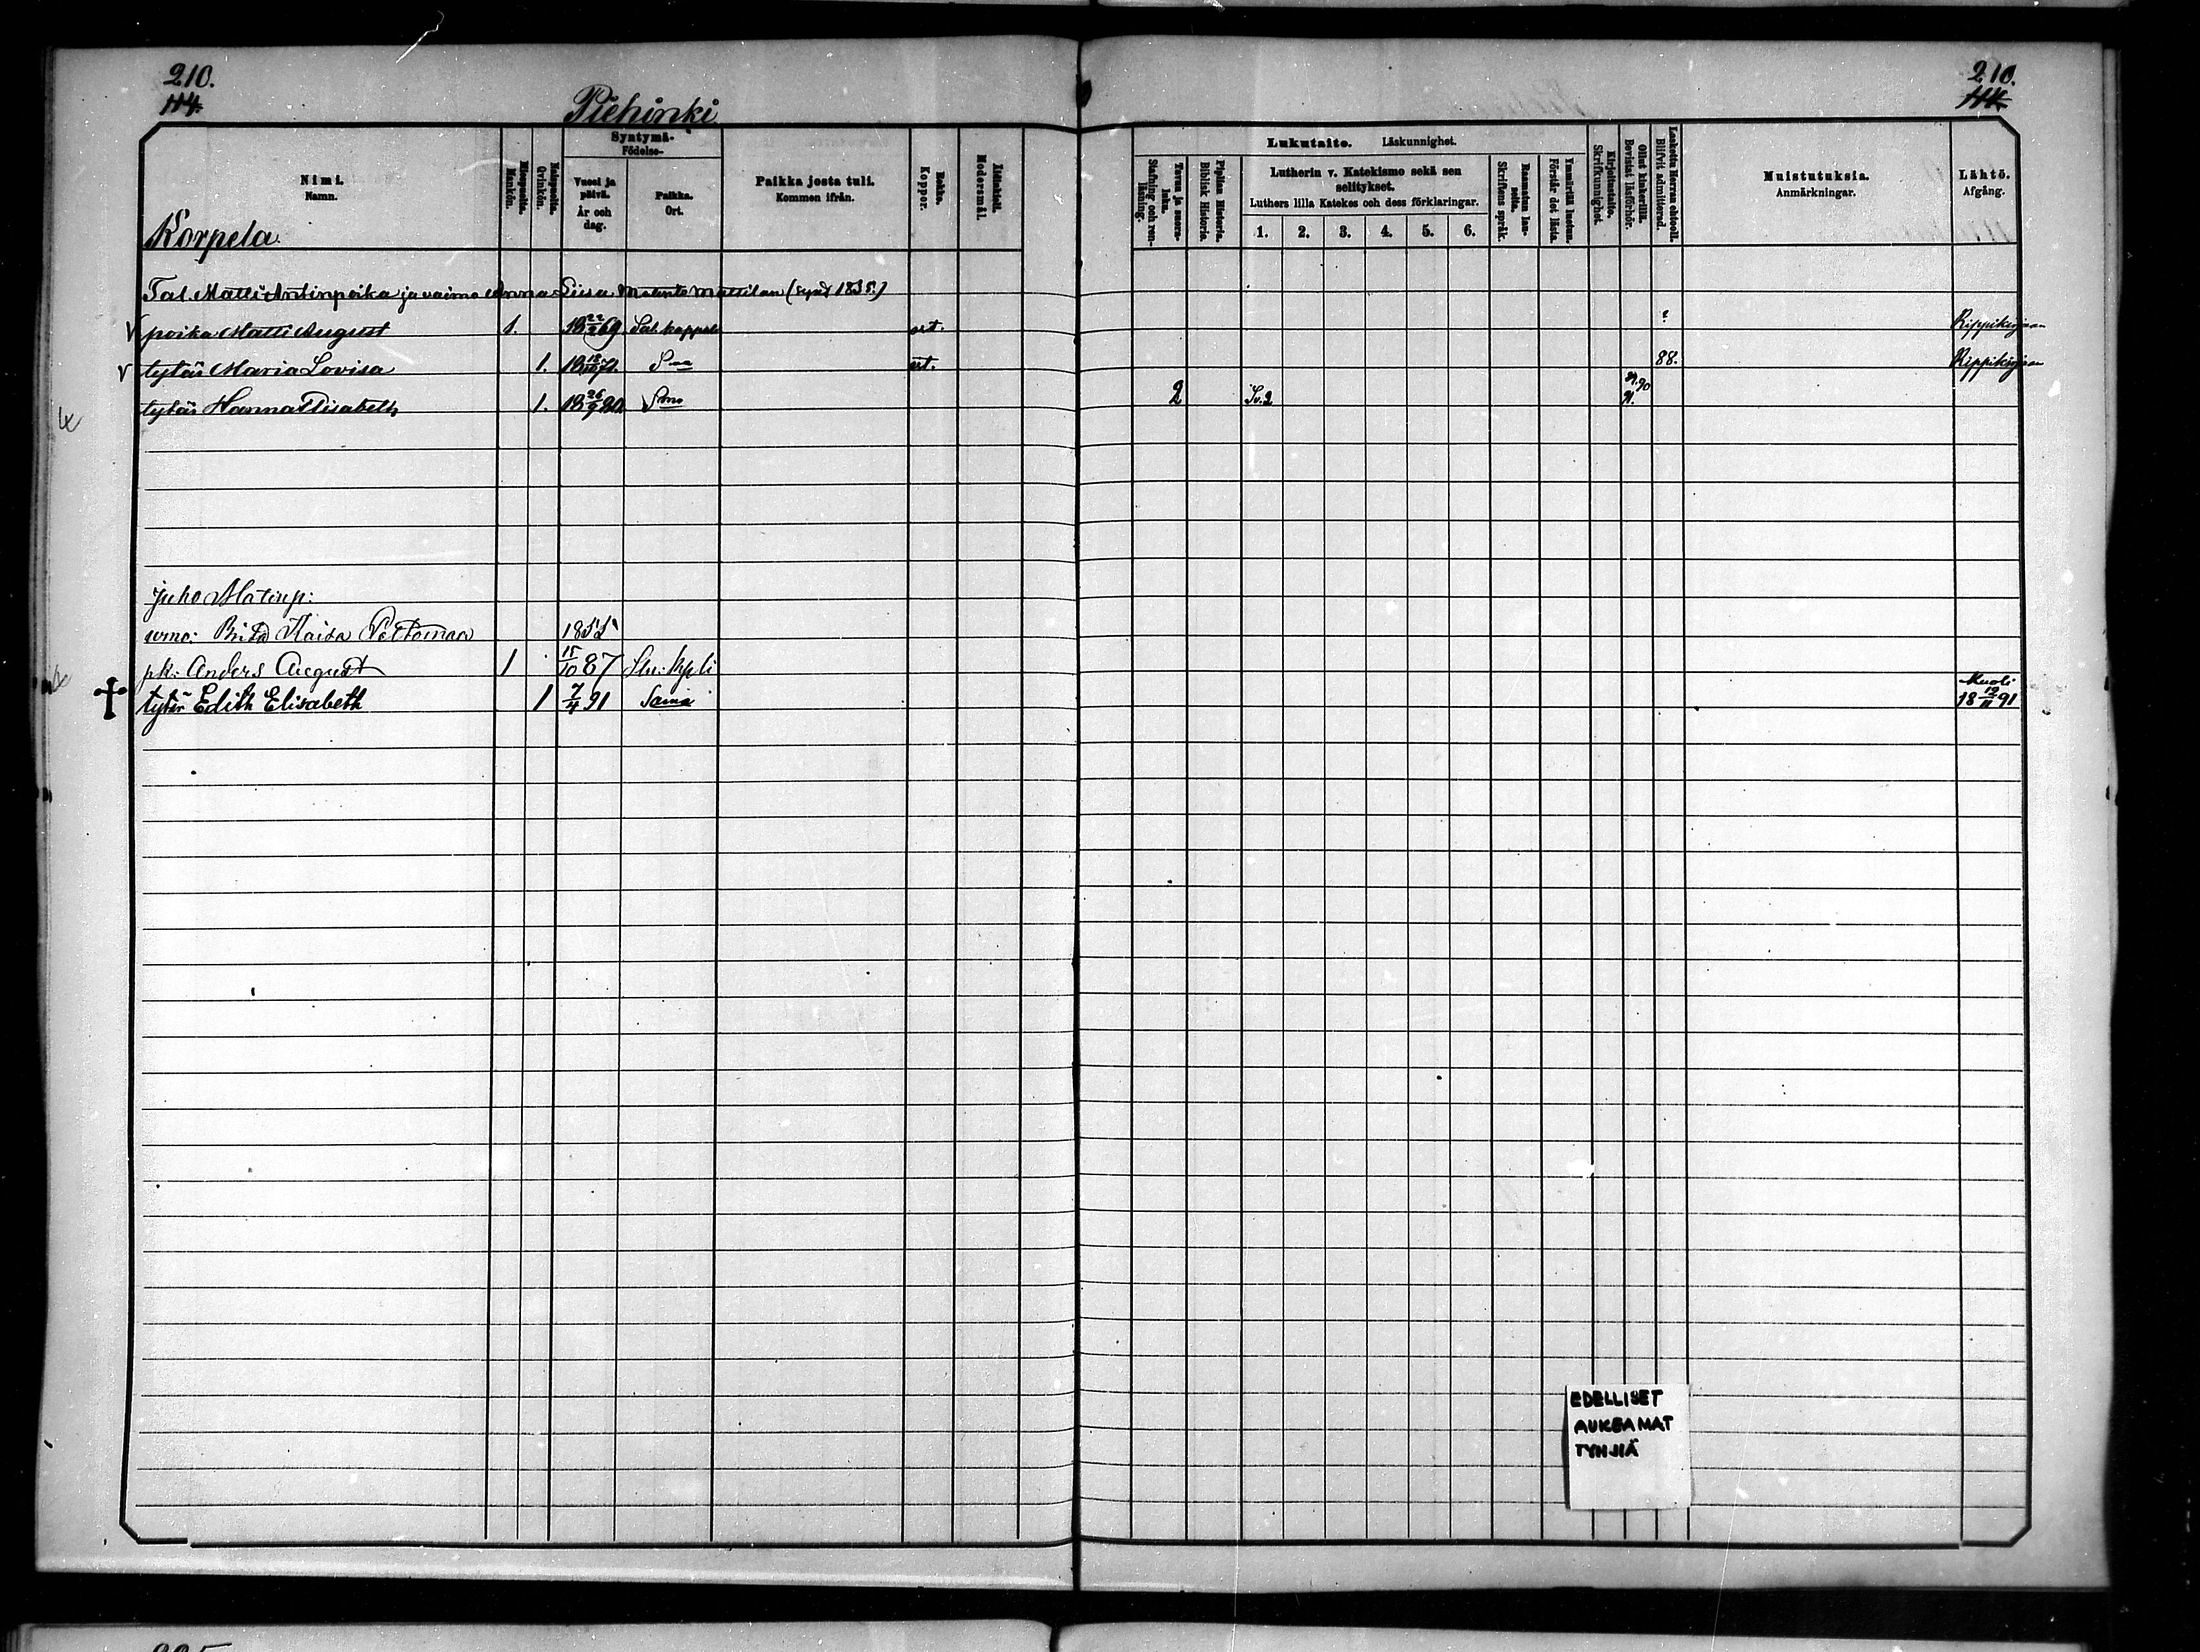 210.
114.
Piehinki
Nimi.
Namn.
Miespuolta.
Mankön.
Naispuolta.
Qvinkön.
Syntymä-
Födelse-
Vuosi ja päivä.
År och dag.
Paikka.
Ort.
Paikka josta tuli.
Kommen ifrån.
Rokko.
Koppor.
Äidinkieli.
Modersmål.
Korpela
Tal. Matti Antinpoika ja vaimo Anna Liisa Mattilan (synt 1835.)
V poika Matti August 1. 18 22/2 69 Sal. kappeli rt.
V tytär Maria Lovisa 1. 18 71. S rt.
tytär Hanna Elisabeth 1. 18 26/9 80 Sma
Juho Matinp:
vmo: Brita Kaisa 1855
pk: Anders August 1 15/10 87 Slo: kpli
tytär Edith Elisabeth 1 7/4 91 Sama
210.
114.
Lukutaito. Läskunnighet.
Tavuu ja suora-luku.
Stafning och ren-läsning.
Piplian Historia.
Biblisk Historie.
Lutherin v. Katekismo sekä sen selitykset.
Luthers lilla Katekes och dess förklaringar.
1. 2. 3. 4. 5. 6.
Raamatun lau-seita.
Skriftens språk.
Ymmärtää luetun.
Förstår det lästa.
Kirjoitustaito.
Skrifkunnighet.
Ollut kinkerillä.
Bevistat läsförhör.
Laskettu Herran ehtooll.
Blifvit admitterad.
Muistutuksia.
Anmärkningar.
Lähtö.
Afgång.
? Rippikirjaan
88. Rippikirjaan
2 Sv. 2 89. 90 91.
Kuoli
18 12/11 91
EDELLISET
AUKEAMAT
TYHJIÄ